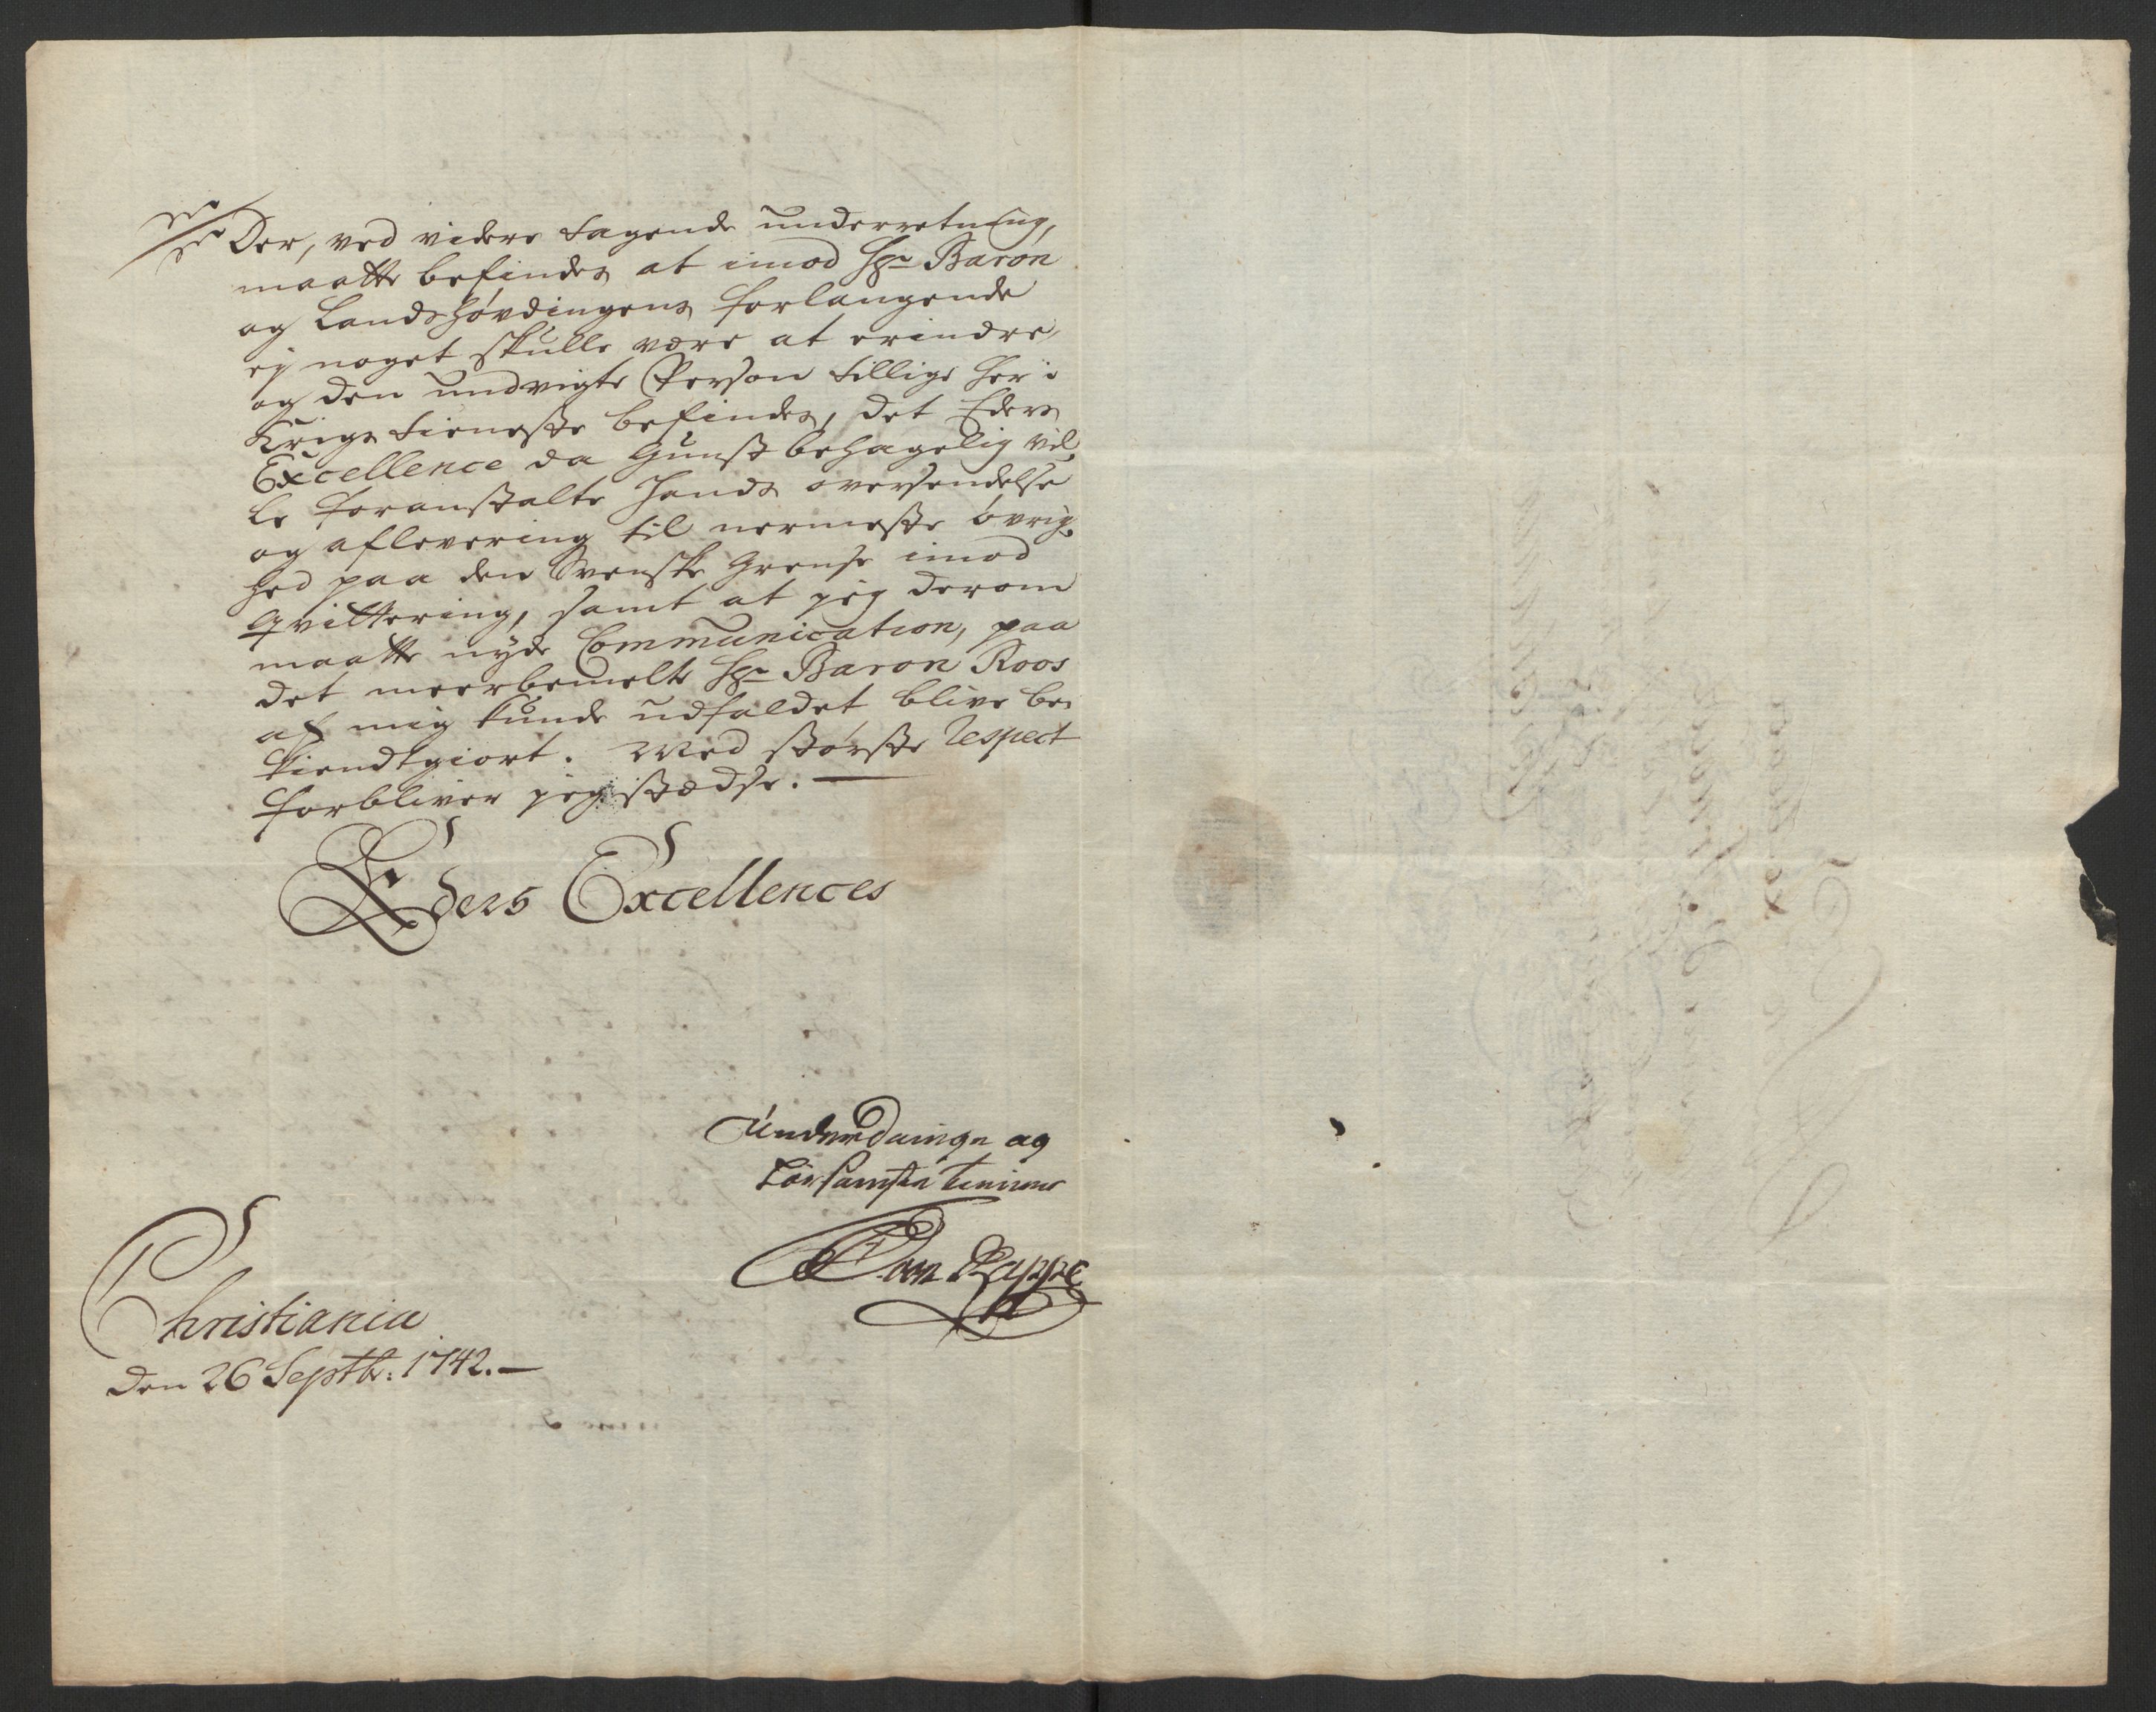 Der, ved videre tagende underretning,
maatte befindes at imod Hr Baron
og Landshövdingens forlangende
ej noget skulle være at erindre,
og den undvigte Person tillige her i
Krigs tieneste befindes, det Eders
Excellence da Gunst behagelig vil
le foranstalte Hands oversendelse
og aflevering til nermeste övrig
hed paa den Svenske Grense imod
Qvittering, samt at jeg derom
maatte nyde Communication, paa
det meerbemelte Hr Baron Roos
af mig kunde udfaldet blive be
kiendtgiort. Med störste Respect
forbliver jeg stædse. —
Eders Excellences
Underdanige og
hörsamste tienner
von Rappe
Christiania
den 26 Septbr: 1742. —